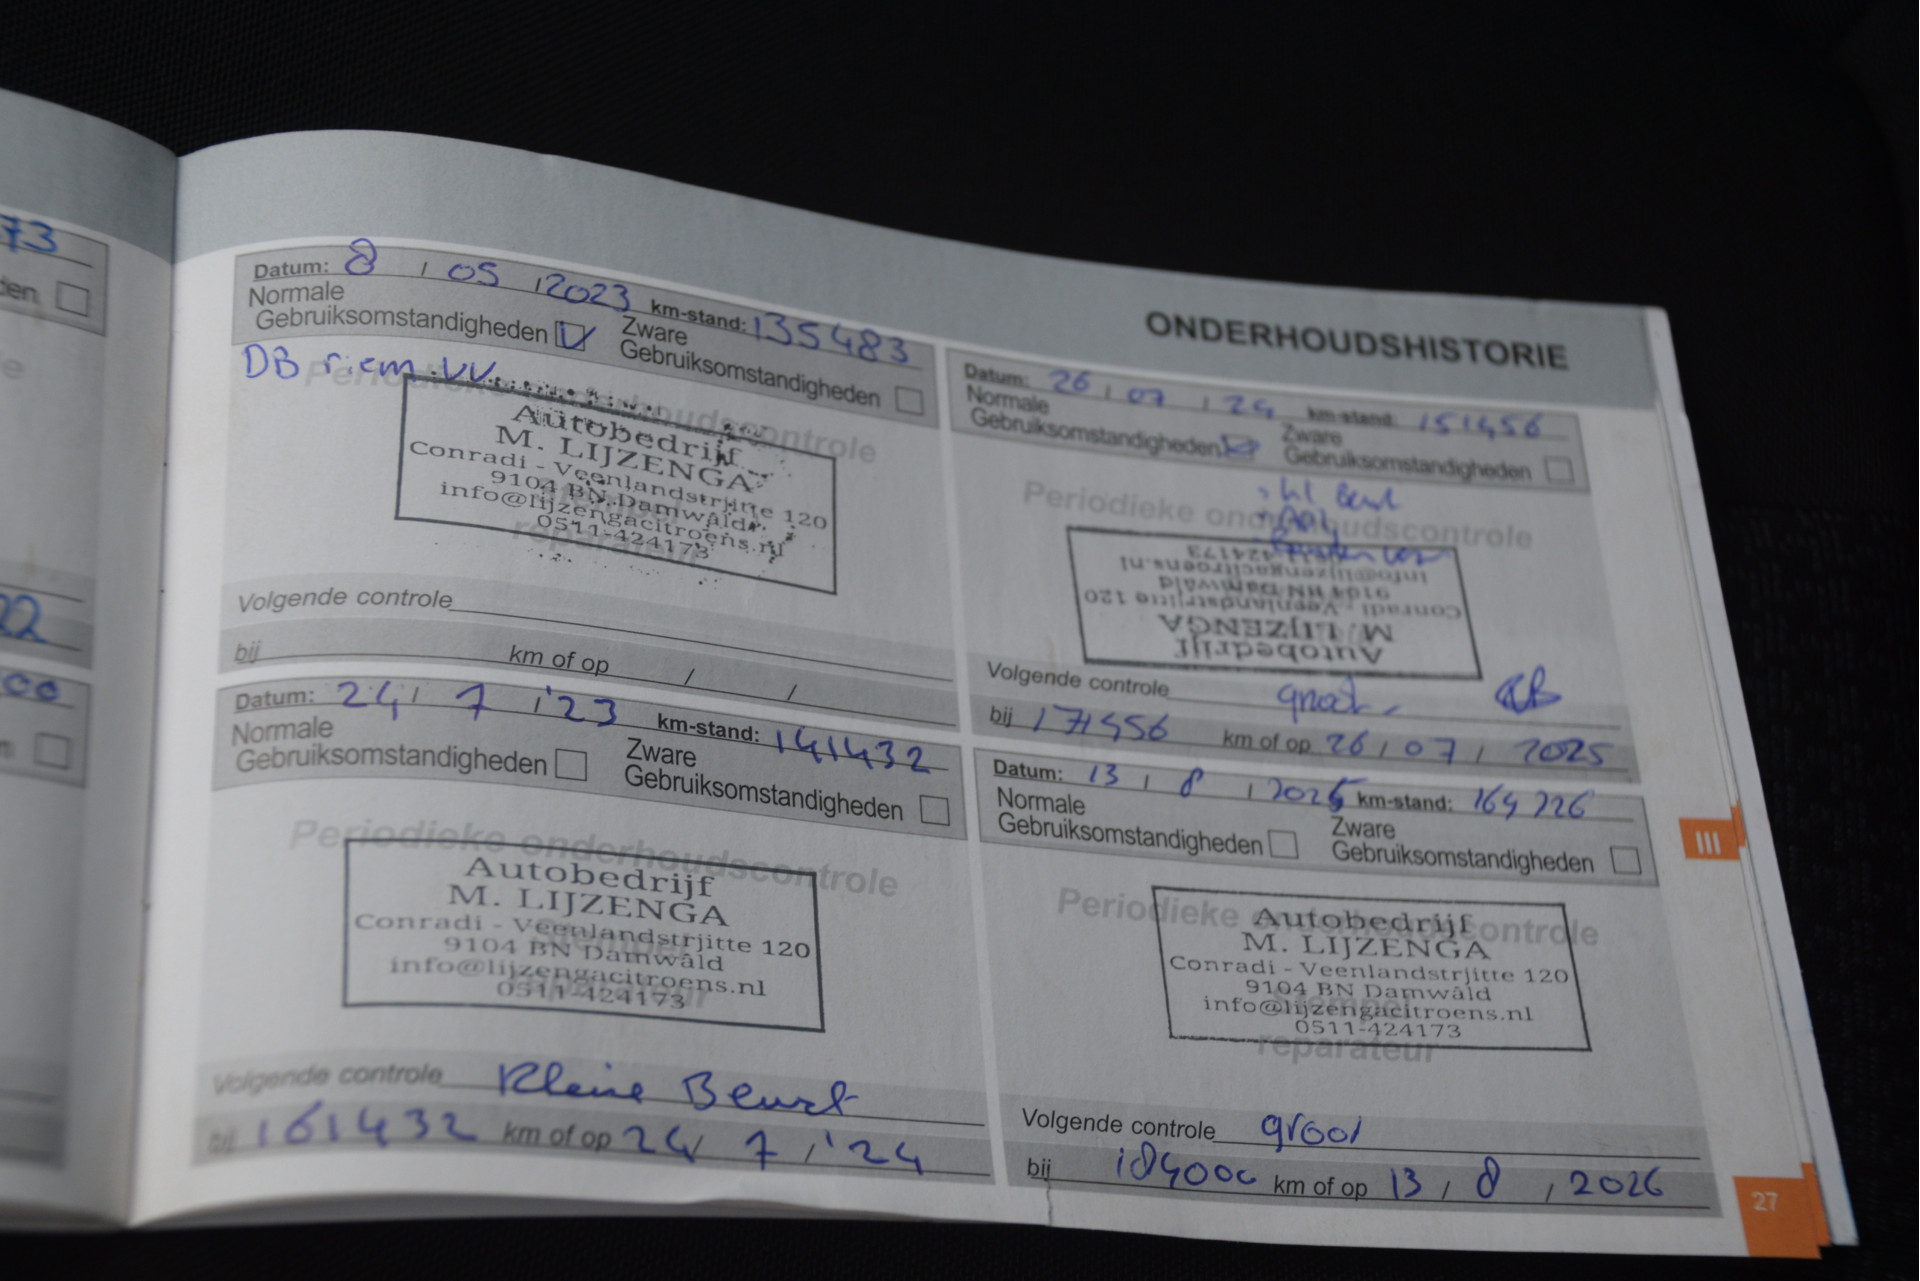 73
den
22
00
ONDERHOUDSHISTORIE
Datum: 8 / 05 / 2023 km-stand: 135483
Normale
Gebruiksomstandigheden V Zware
Gebruiksomstandigheden
DB riem vv
Periodieke onderhoudscontrole
Autobedrijf
M. LIJZENGA
Conradi - Veenlandstrjitte 120
9104 BN Damwâld
info@lijzengacitroens.nl
0511-424173
reparateur
Volgende controle
bij km of op / /
Datum: 24 / 7 / '23 km-stand: 141432
Normale
Gebruiksomstandigheden Zware
Gebruiksomstandigheden
Periodieke onderhoudscontrole
Stempel
Autobedrijf
M. LIJZENGA
Conradi - Veenlandstrjitte 120
9104 BN Damwâld
info@lijzengacitroens.nl
0511-424173
reparateur
Volgende controle Kleine Beurt
bij 161432 km of op 24 / 7 / '24
Datum: 26 / 07 / 24 km-stand: 151456
Normale
Gebruiksomstandigheden Zware
Gebruiksomstandigheden
Periodieke onderhoudscontrole
Autobedrijf
M. LIJZENGA
Conradi - Veenlandstrjitte 120
9104 BN Damwâld
info@lijzengacitroens.nl
0511-424173
Volgende controle groot
bij 171456 km of op 26 / 07 / 2025
Datum: 13 / 8 / 2025 km-stand: 164226
Normale
Gebruiksomstandigheden Zware
Gebruiksomstandigheden
Periodieke onderhoudscontrole
Stempel
Autobedrijf
M. LIJZENGA
Conradi - Veenlandstrjitte 120
9104 BN Damwâld
info@lijzengacitroens.nl
0511-424173
reparateur
Volgende controle groot
bij 184000 km of op 13 / 8 / 2026
III
27